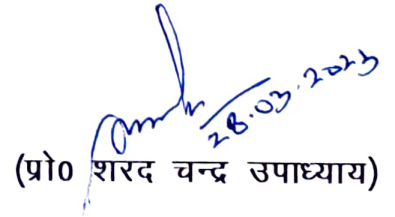 28.03.2023
(प्रो० शरद चन्द्र उपाध्याय)